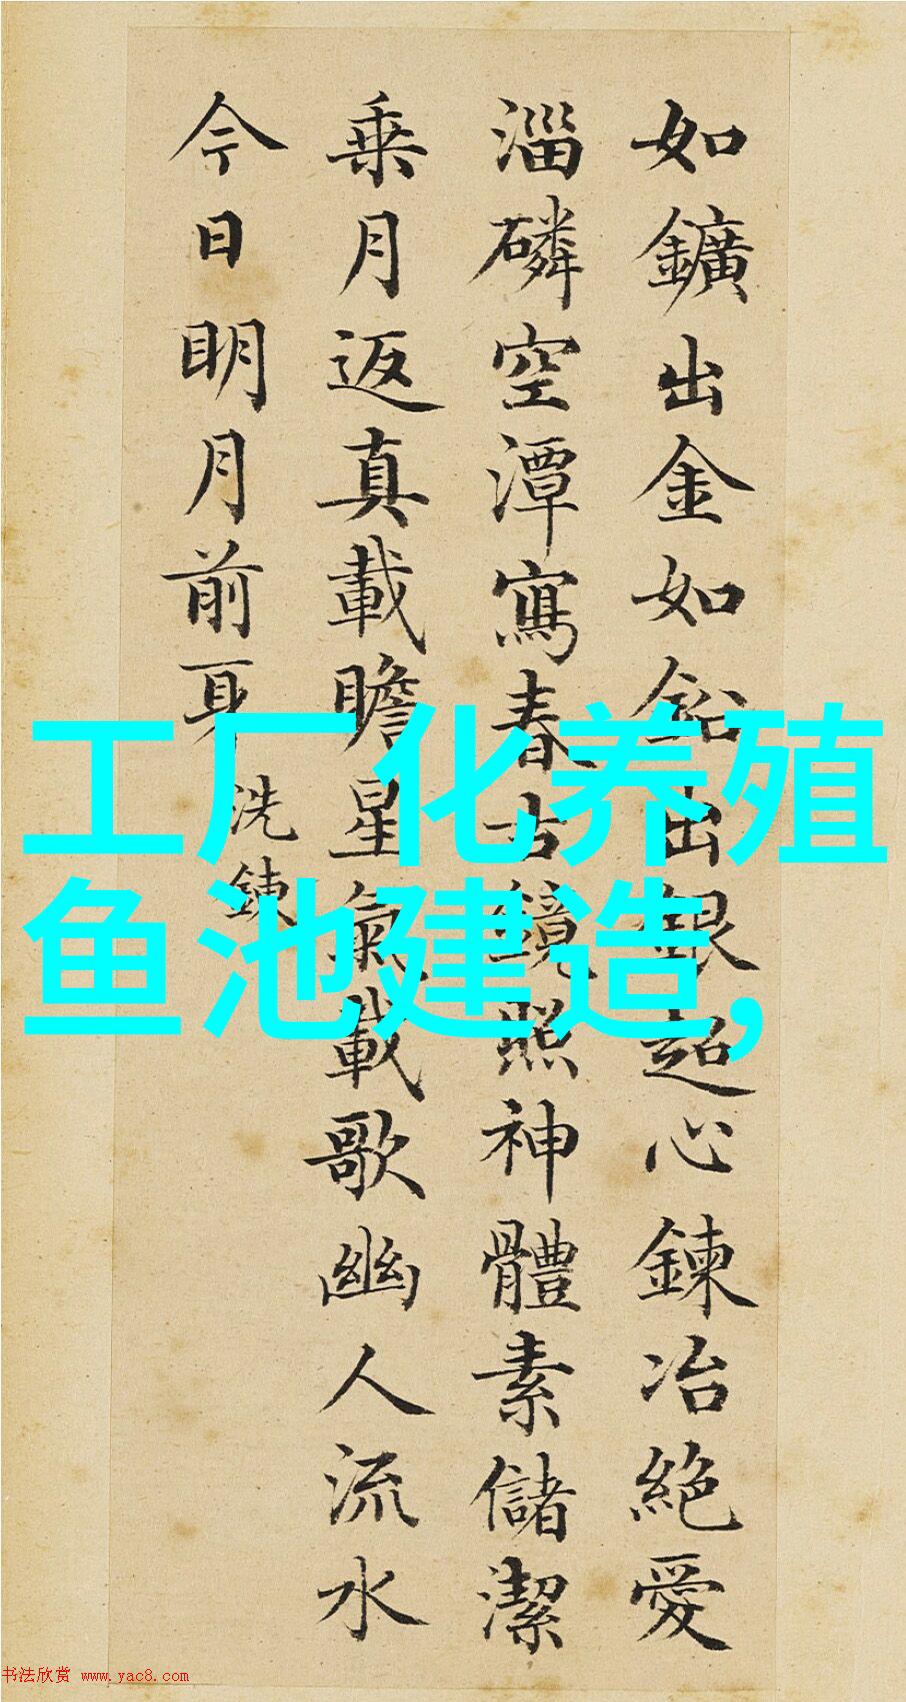 如鑛出金如鉛出銀超心鍊冶絕愛
淄磷空潭寫春古鏡照神體素儲潔
乗月返真載瞻星氣載歌幽人流水
今日明月前身
洗鍊
工厂化养殖
鱼池建造,
书法欣赏 www.yac8.com